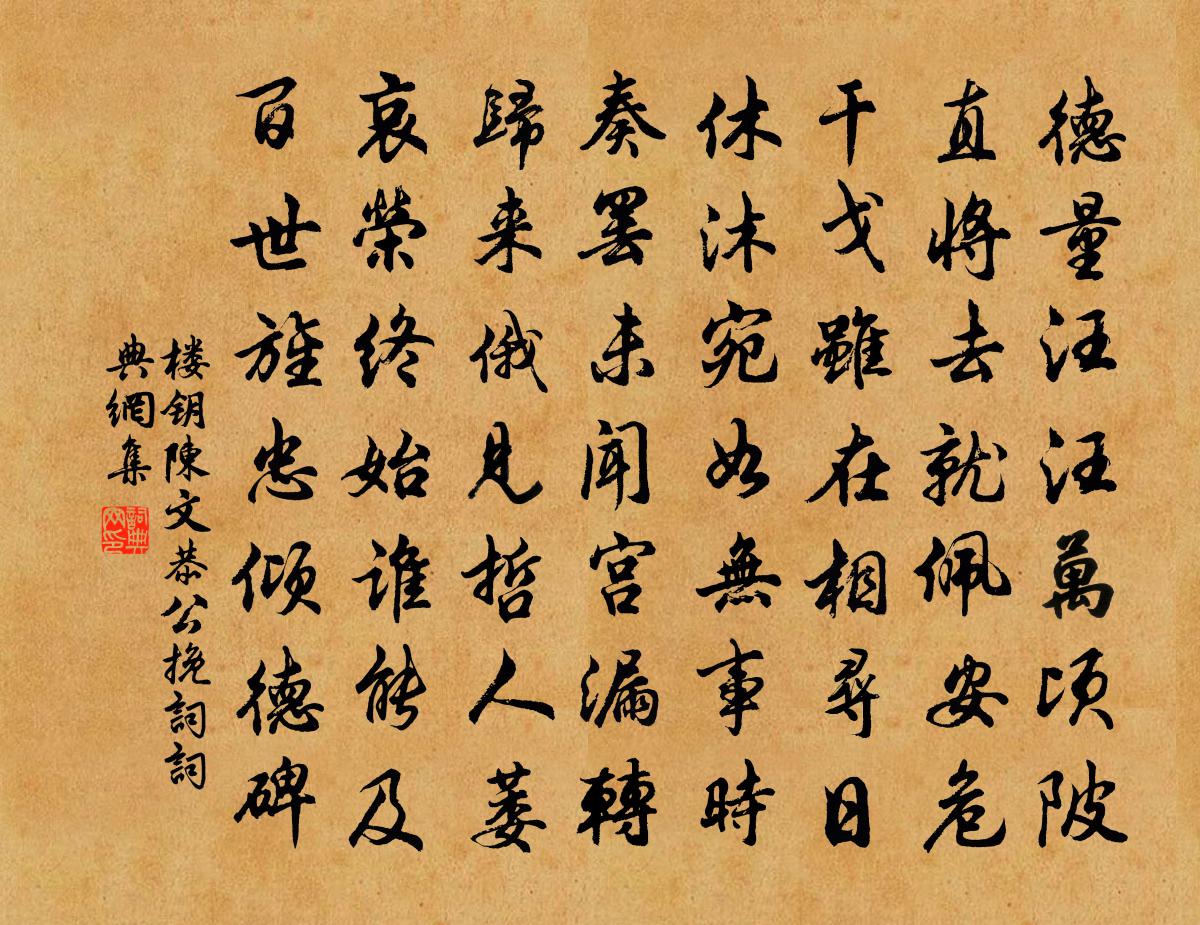 德量汪汪萬頃陂
直將去就佩安危
干戈雖在相尋日
休沐宛如無事時
奏罷未聞宮漏轉
歸来俄見哲人萎
哀榮終始誰能及
百世旌忠傾德碑
楼钥陳文恭公挽詞詞
典網集
詞典網印